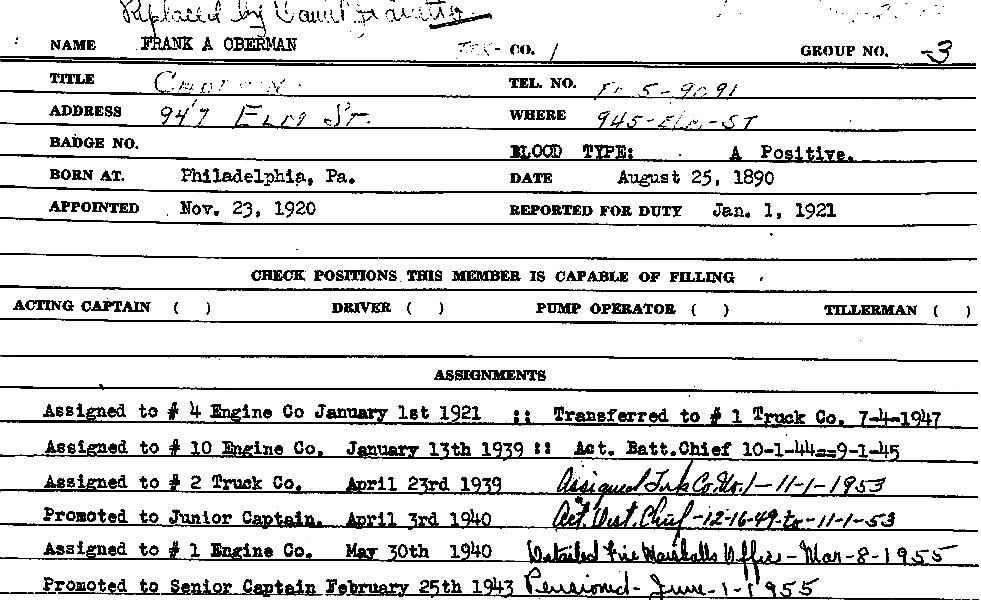 Replaced by Daniel
NAME FRANK A OBERMAN TRK- CO. 1 GROUP NO. 3
TITLE CAPTAIN TEL. NO. 5-9091
ADDRESS 947 ELM ST. WHERE 945-ELM-ST
BADGE NO. BLOOD TYPE: A Positive.
BORN AT. Philadelphia, Pa. DATE August 25, 1890
APPOINTED Nov. 23, 1920 REPORTED FOR DUTY Jan. 1, 1921
CHECK POSITIONS THIS MEMBER IS CAPABLE OF FILLING
ACTING CAPTAIN ( ) DRIVER ( ) PUMP OPERATOR ( ) TILLERMAN ( )
ASSIGNMENTS
Assigned to # 4 Engine Co January 1st 1921 :: Transferred to # 1 Truck Co. 7-4-1947
Assigned to # 10 Engine Co. January 13th 1939 :: Act. Batt.Chief 10-1-44==9-1-45
Assigned to # 2 Truck Co. April 23rd 1939 Assigned Trk Co. No. 1 - 11-1-1953
Promoted to Junior Captain. April 3rd 1940 Act. Dist. Chief -12-16-49-to-11-1-53
Assigned to # 1 Engine Co. May 30th 1940 Detailed Fire Marshalls Office - Mar-8-1955
Promoted to Senior Captain February 25th 1943 Pensioned - June-1-1955